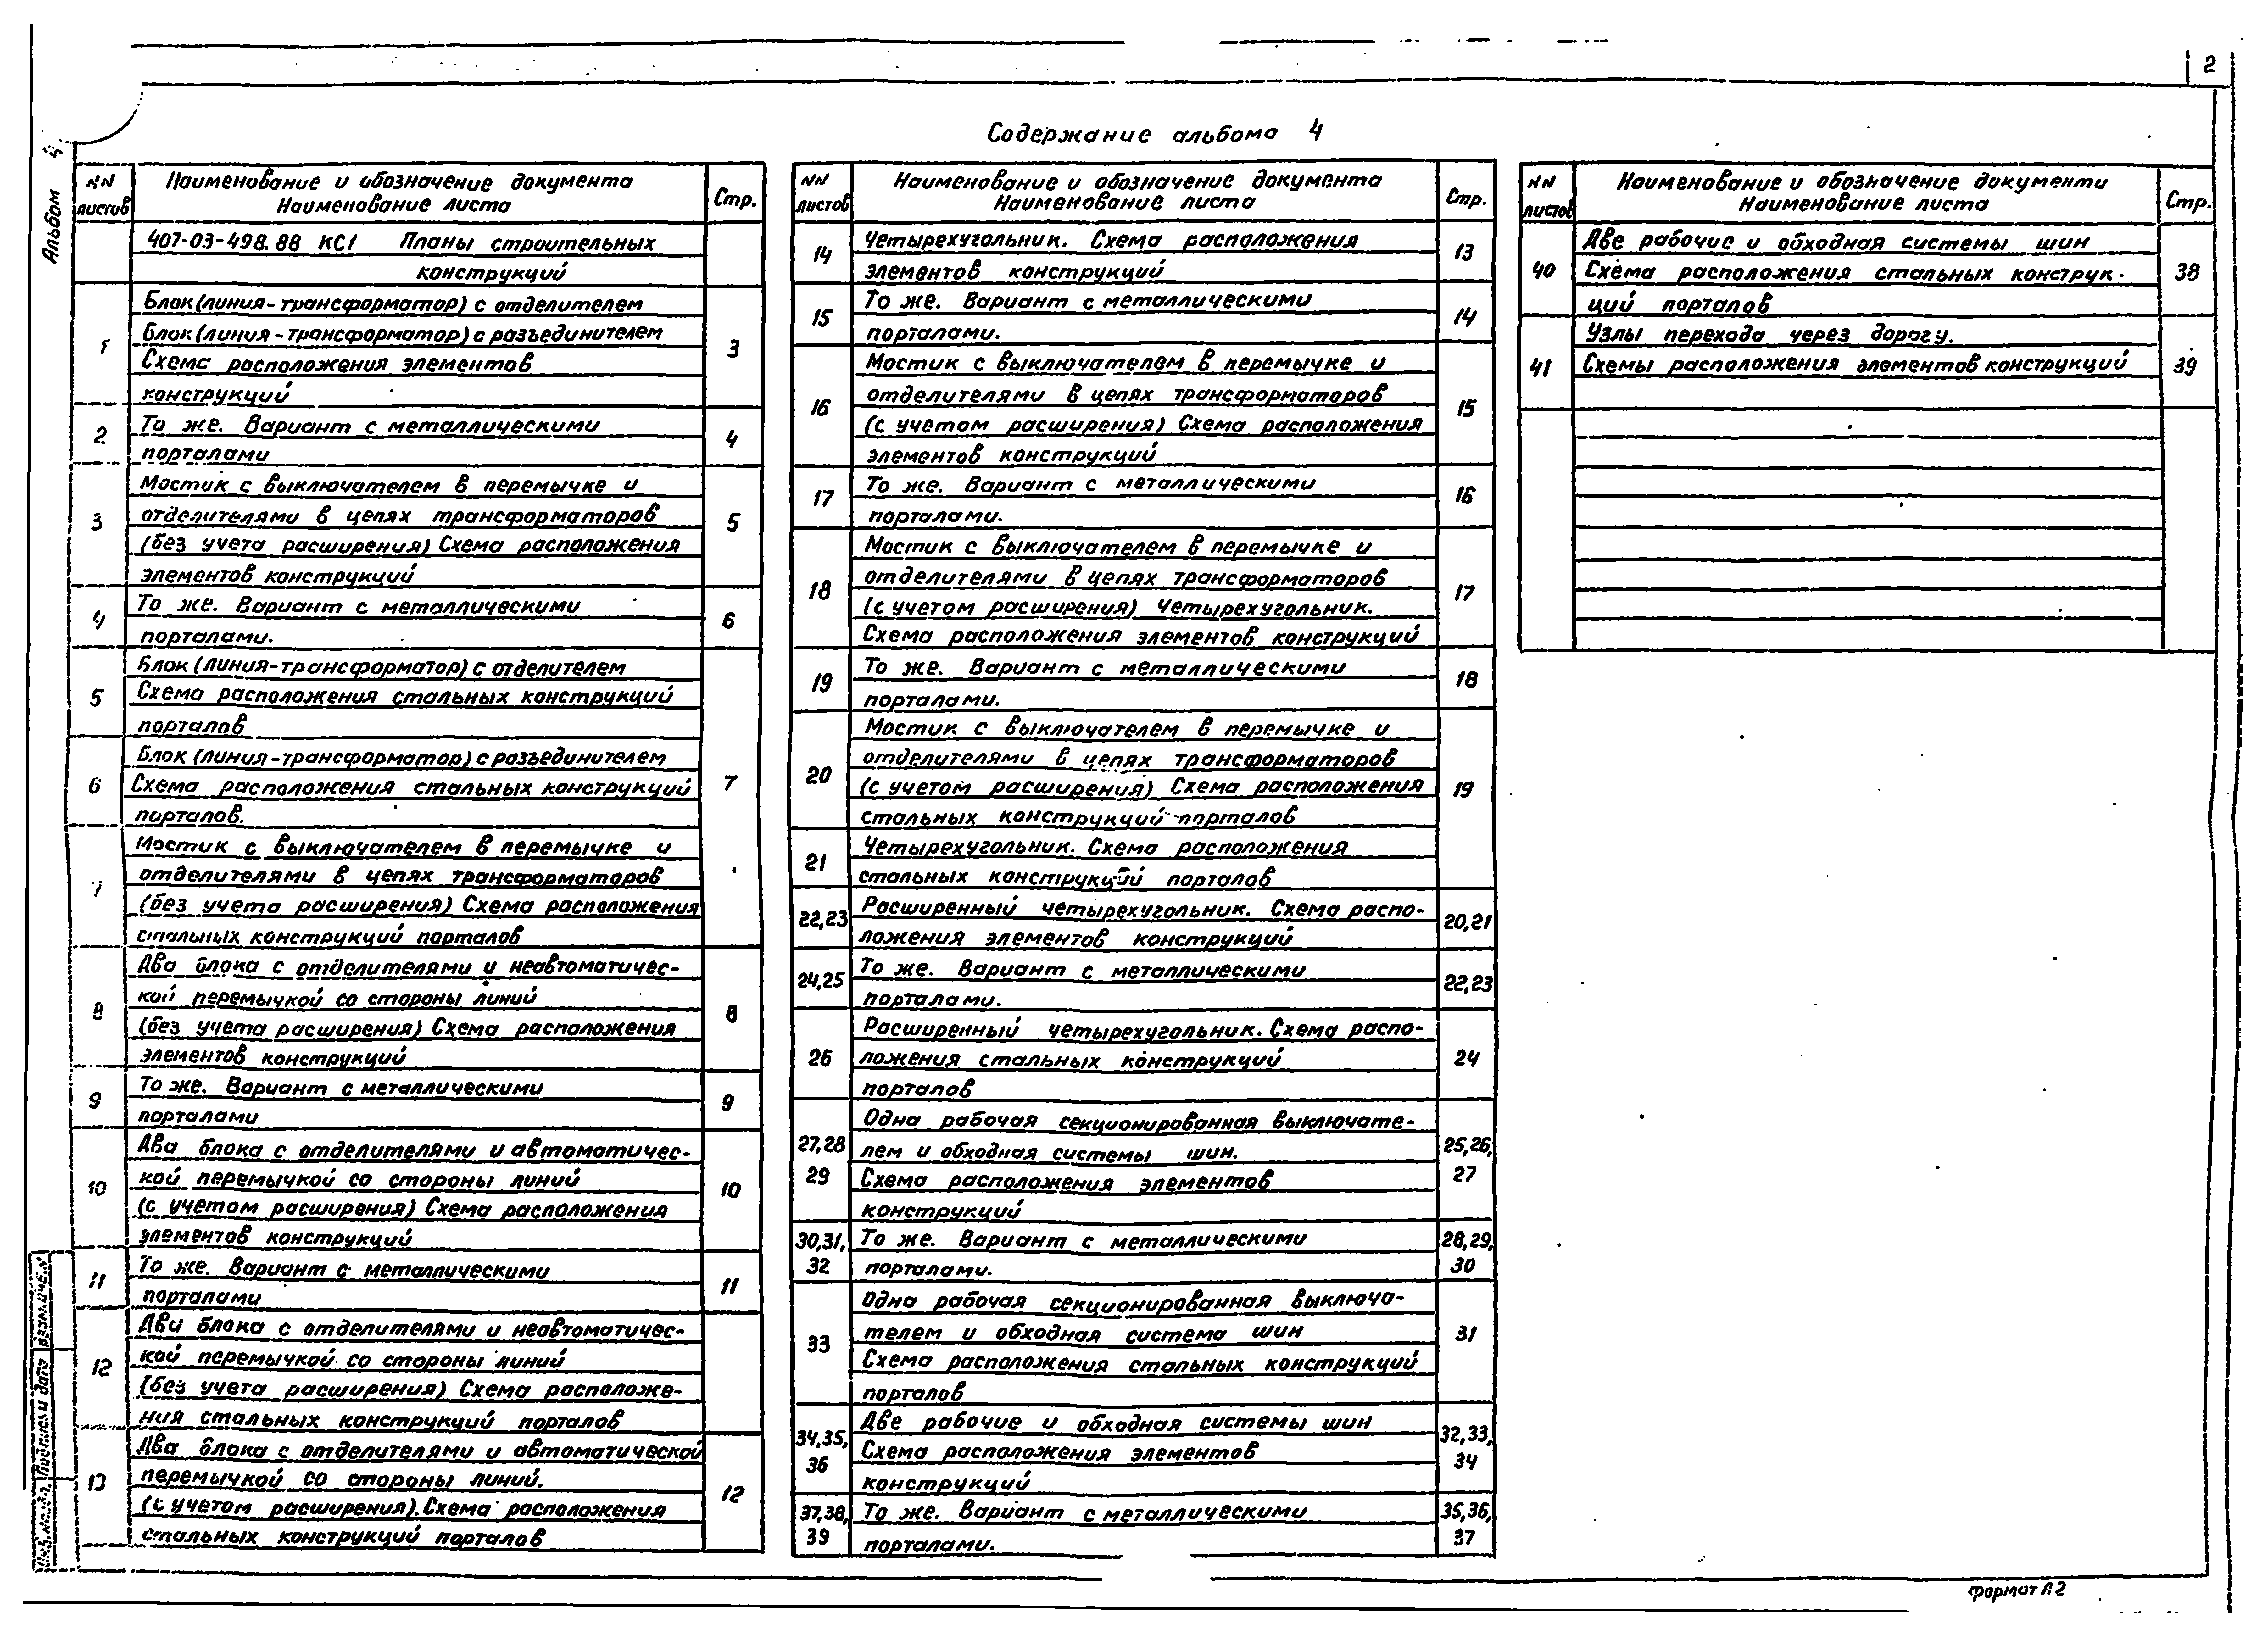 2
Содержание альбома 4
Альбом 4
NN листов
Наименование и обозначение документа
Наименование листа
Стр.
407-03-498.88 КС1 Планы строительных
конструкций
1
Блок (линия-трансформатор) с отделителем
Блок (линия-трансформатор) с разъединителем
Схема расположения элементов
конструкций
3
2
То же. Вариант с металлическими
порталами
4
3
Мостик с выключателем в перемычке и
отделителями в цепях трансформаторов
(без учета расширения) Схема расположения
элементов конструкций
5
4
То же. Вариант с металлическими
порталами.
6
5
Блок (линия-трансформатор) с отделителем
Схема расположения стальных конструкций
порталов
6
Блок (линия-трансформатор) с разъединителем
Схема расположения стальных конструкций
порталов.
7
7
Мостик с выключателем в перемычке и
отделителями в цепях трансформаторов
(без учета расширения) Схема расположения
стальных конструкций порталов
8
Два блока с отделителями и неавтоматичес-
кой перемычкой со стороны линий
(без учета расширения) Схема расположения
элементов конструкций
8
9
То же. Вариант с металлическими
порталами
9
10
Два блока с отделителями и автоматичес-
кой перемычкой со стороны линий
(с учетом расширения) Схема расположения
элементов конструкций
10
11
То же. Вариант с металлическими
порталами
11
12
Два блока с отделителями и неавтоматичес-
кой перемычкой со стороны линий
(без учета расширения) Схема расположе-
ния стальных конструкций порталов
13
Два блока с отделителями и автоматической
перемычкой со стороны линий.
(с учетом расширения). Схема расположения
стальных конструкций порталов
12
NN листов
Наименование и обозначение документа
Наименование листа
Стр.
14
Четырехугольник. Схема расположения
элементов конструкций
13
15
То же. Вариант с металлическими
порталами.
14
16
Мостик с выключателем в перемычке и
отделителями в цепях трансформаторов
(с учетом расширения) Схема расположения
элементов конструкций
15
17
То же. Вариант с металлическими
порталами.
16
18
Мостик с выключателем в перемычке и
отделителями в цепях трансформаторов
(с учетом расширения) Четырехугольник.
Схема расположения элементов конструкций
17
19
То же. Вариант с металлическими
порталами.
18
20
Мостик с выключателем в перемычке и
отделителями в цепях трансформаторов
(с учетом расширения) Схема расположения
стальных конструкций порталов
19
21
Четырехугольник. Схема расположения
стальных конструкций порталов
22,23
Расширенный четырехугольник. Схема распо-
ложения элементов конструкций
20,21
24,25
То же. Вариант с металлическими
порталами.
22,23
26
Расширенный четырехугольник. Схема распо-
ложения стальных конструкций
порталов
24
27,28
29
Одна рабочая секционированная выключате-
лем и обходная системы шин.
Схема расположения элементов
конструкций
25,26,
27
30,31,
32
То же. Вариант с металлическими
порталами.
28,29,
30
33
Одна рабочая секционированная выключа-
телем и обходная система шин
Схема расположения стальных конструкций
порталов
31
34,35,
36
Две рабочие и обходная системы шин
Схема расположения элементов
конструкций
32,33,
34
37,38,
39
То же. Вариант с металлическими
порталами.
35,36,
37
NN листов
Наименование и обозначение документа
Наименование листа
Стр.
40
Две рабочие и обходная системы шин
Схема расположения стальных конструк-
ций порталов
38
41
Узлы перехода через дорогу.
Схемы расположения элементов конструкций
39
Инв. № подл. Подпись и дата Взам. инв. №
формат А2